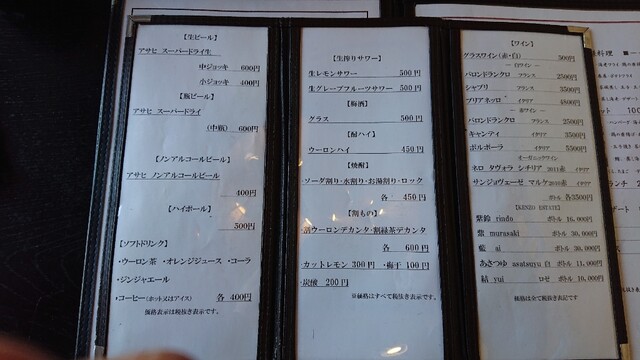 【生ビール】
アサヒ スーパードライ生
中ジョッキ 600円
小ジョッキ 400円
【瓶ビール】
アサヒ スーパードライ
(中瓶) 600円
【ノンアルコールビール】
アサヒ ノンアルコールビール
400円
【ハイボール】
500円
【ソフトドリンク】
・ウーロン茶 ・オレンジジュース ・コーラ
・ジンジャエール
・コーヒー(ホット又はアイス) 各 400円
価格表示は税抜き表示です。
【生搾りサワー】
生レモンサワー 500円
生グレープフルーツサワー 500円
【梅酒】
グラス 500円
【酎ハイ】
ウーロンハイ 450円
【焼酎】
・ソーダ割り・水割り・お湯割り・ロック
各 450円
【割もの】
・割ウーロンデカンタ・割緑茶デカンタ
各 600円
・カットレモン 300円 ・梅干 100円
・炭酸 200円
※価格はすべて税抜き表示です。
【ワイン】
グラスワイン(赤・白) 500円
―白ワイン―
バロンドランクロ フランス 2500円
シャブリ フランス 3500円
ブリアネッロ イタリア 4800円
―赤ワイン―
バロンドランクロ フランス 2500円
キャンティ イタリア 3500円
ボルポーラ イタリア 5500円
オーガニックワイン
ネロ タヴォラ シチリア 2011赤 イタリア
サンジョヴェーゼ マルケ2010赤 イタリア
ボトル 各3500円
【KENZO ESTATE】
紫鈴 rindo ボトル 16,000円
紫 murasaki ボトル 30,000円
藍 ai ボトル 30,000円
あさつゆ asatsuyu 白 ボトル 11,000円
結 yui ロゼ ボトル 10,000円
価格は全て税抜き表記です